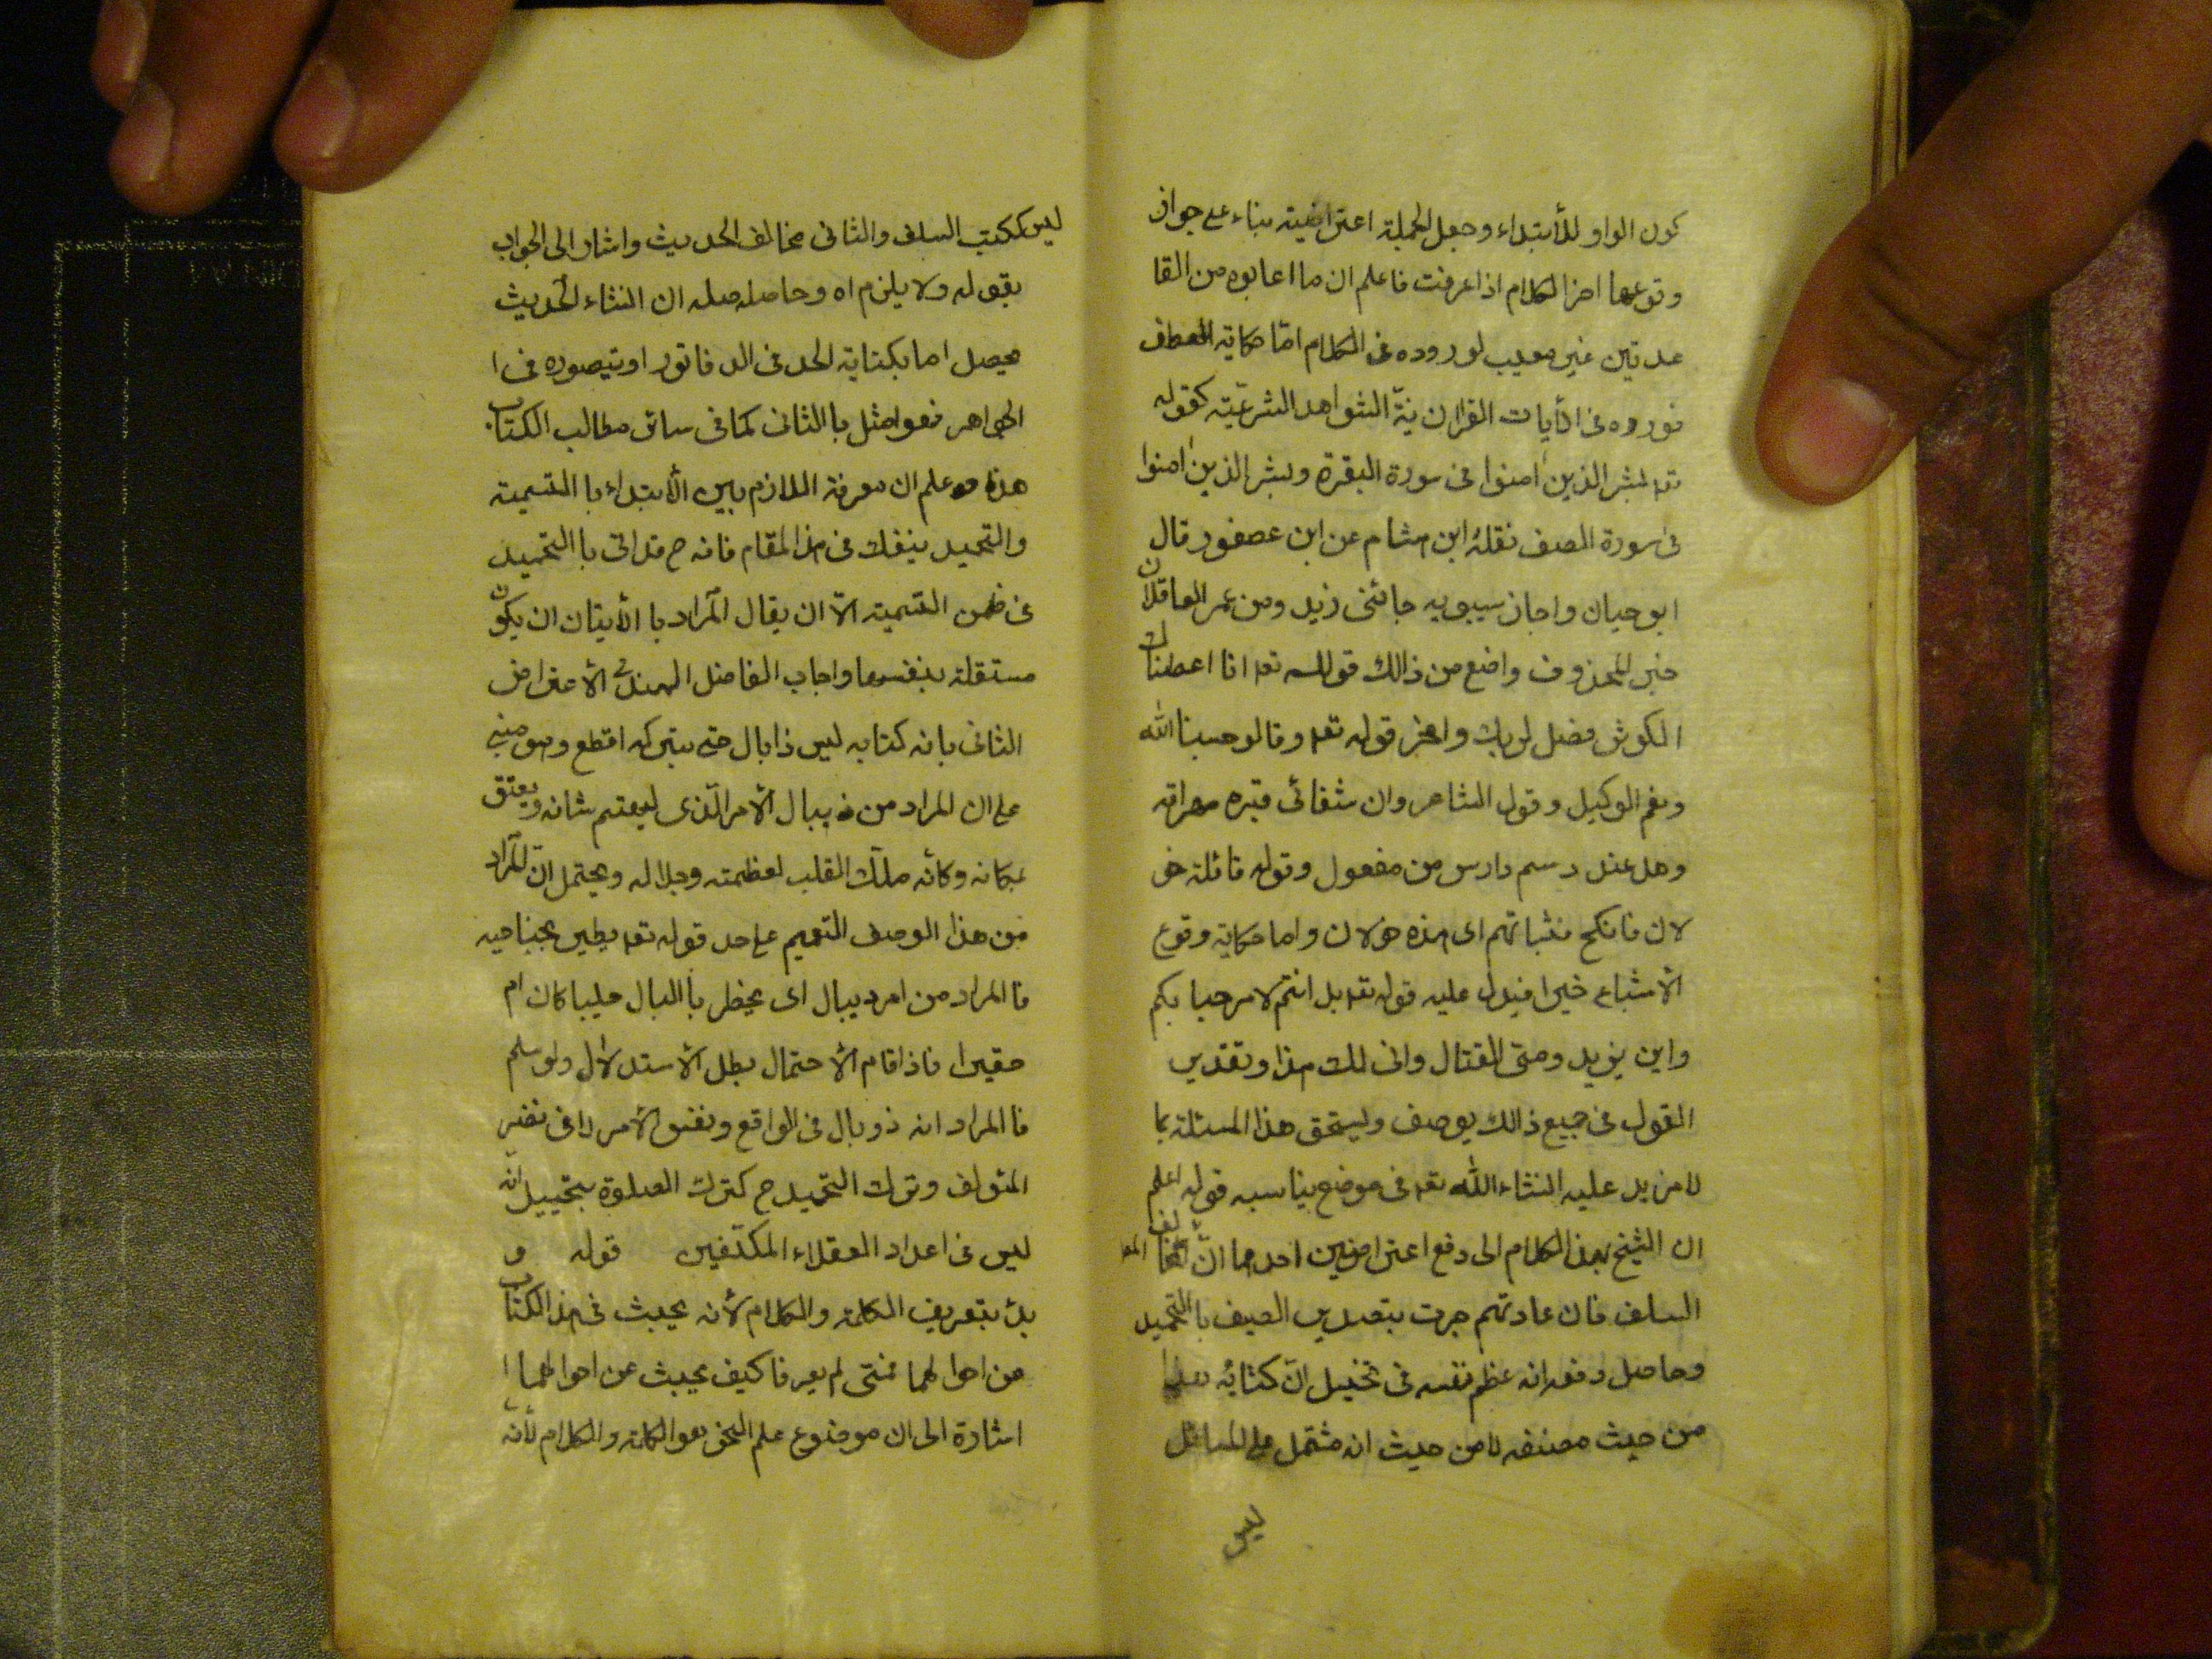 كون الواو للأبتداء وجعل الجملة اعتراضية بناء على جواز
وقوعها اخر الكلام اذا عرفت فاعلم ان ما اعابوه من القا
عدتين غير معيب لوروده فى الكلام امّا حكاية العطف
فوروه فى الأيات القران نيّة الشواهد الشرعيّة كقوله
تعـ لبشر الذين امنوا فى سورة البقرة وبشر الذين امنوا
فى سورة الصف نقله ابن هشام عن ابن عصفور قال
ابو حيان واجاز سيبويه جائنى زيد ومن عمر العاقلان
خبر المحذوف واضع من ذالك قوله تعـ انا اعطناك
الكوثر فصل لربك وانحر قوله تعـ وقالو حسبنا الله
ونعم الوكيل وقول الشاعر وان شفائى قبره مهراقة
وهل عند رسم دارس من مفعول وقوله قائلة خو
لان فانكح فتياتهم اى هذه خولان واما حكاية وقوع
الأنشاء خبرا فيدل عليه قوله تعـ بل انتم لا مرحبا بكم
واين يزيد ومتى القتال وانى لك هذا وتقدير
القول فى جميع ذالك يوصف وليستحق هذا المسئلة بما
لا مزيد عليه انشاء الله تعـ فى موضع يناسبه قوله اعلم
ان الشيخ بهذا الكلام الى دفع اعتراضين احدهما انّ
السلف فان عادتهم جرت بتصدير الصيف باالتحميد
وحاصل دفعه انه عظم نفسه فى تخييل انّ كتابه
من حيث مصنفه لا من حيث انه مشتمل على المسائل
ليس
ليس ككتب السلف والثانى مخالف الحديث واشار الى الجواب
بقوله ولا يلزم اه وحاصله صله ان انشاء الحديث
يحصل اما بكتابة الحد فى الد فاتور او بتصوره فى ا
لجواهر فهو امثل باالثانى كما فى سائر مطالب الكتاب
هذه علم ان معرفة اللازم بين الأبتداء باالتسمية
والتحميد ينفك فى هذا المقام فانه ح قد اتى باالتحميد
فى ضمن التسمية الاّ ان يقال المراد باالأيتان ان يكون
مستقلة بنفسها واجاب الفاضل الهندى الأعتراض
الثانى بانه كتابه ليس ذا بال حتى بتركه اقطع وهو مبنى
على ان المراد من ذيبال الأمر الّذى ليهتم شانه ويعتق
بمكانه وكأنه ملك القلب لعظمته وجلاله ويحتمل انّ المراد
من هذا الوصف التعميم على حد قوله تعـ يطير بجناحيه
فاالمراد من امرد يبال اى يخطر باالبال جليا كان ام
حقيرا فاذا قام الأحتمال بطل الأستدلال ولو سلم
فاالمراد انه ذو بال فى الواقع ونفس الأمر لا فى نفس
المئولف وترك التحميد ح كترك الصلوة بتخييل انّه
ليس فى اعداد العقلاء المكلّفين قوله و
بدء بتعريف الكلمة والكلام لأنه يحبث فى هذا الكتاب
من احوالهما فمتى لم يعرفا كيف يحبث عن احوالهما ا
اشارة الى ان موضوع علم النحو هو الكلمة والكلام لأنه